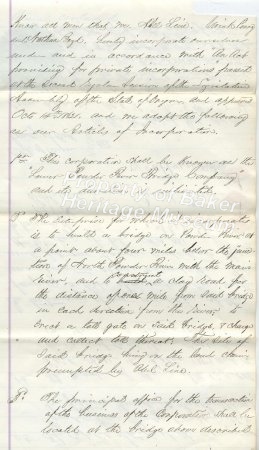 Know all men that we Abel Finn,
and hereby incorporate ourselves
under and in accordance with "An Act
providing for private incorporations" passed
at the Second Regular Session of the Legislative
Assembly of the State of Oregon and approved
Oct 14 1862, and we adopt the following
as our Articles of Incorporation.
1st This corporation shall be known as the
"Lower Powder River Bridge Company"
and its duration
2nd The enterprise in which the incorporators
is to build a bridge on Powder River at
a point about four miles below the junc
tion of North Powder River with the main
river, and to construct a clay road for
the distance of one mile from said bridge
in each direction from the River to
erect a toll gate on said bridge & charge
and collect toll thereat. The site of
said bridge being on the land claim
preempted by Abel Finn.
3d The principal office for the transaction
of the business of the Corporation shall be
located at the bridge above described
Baker
Heritage